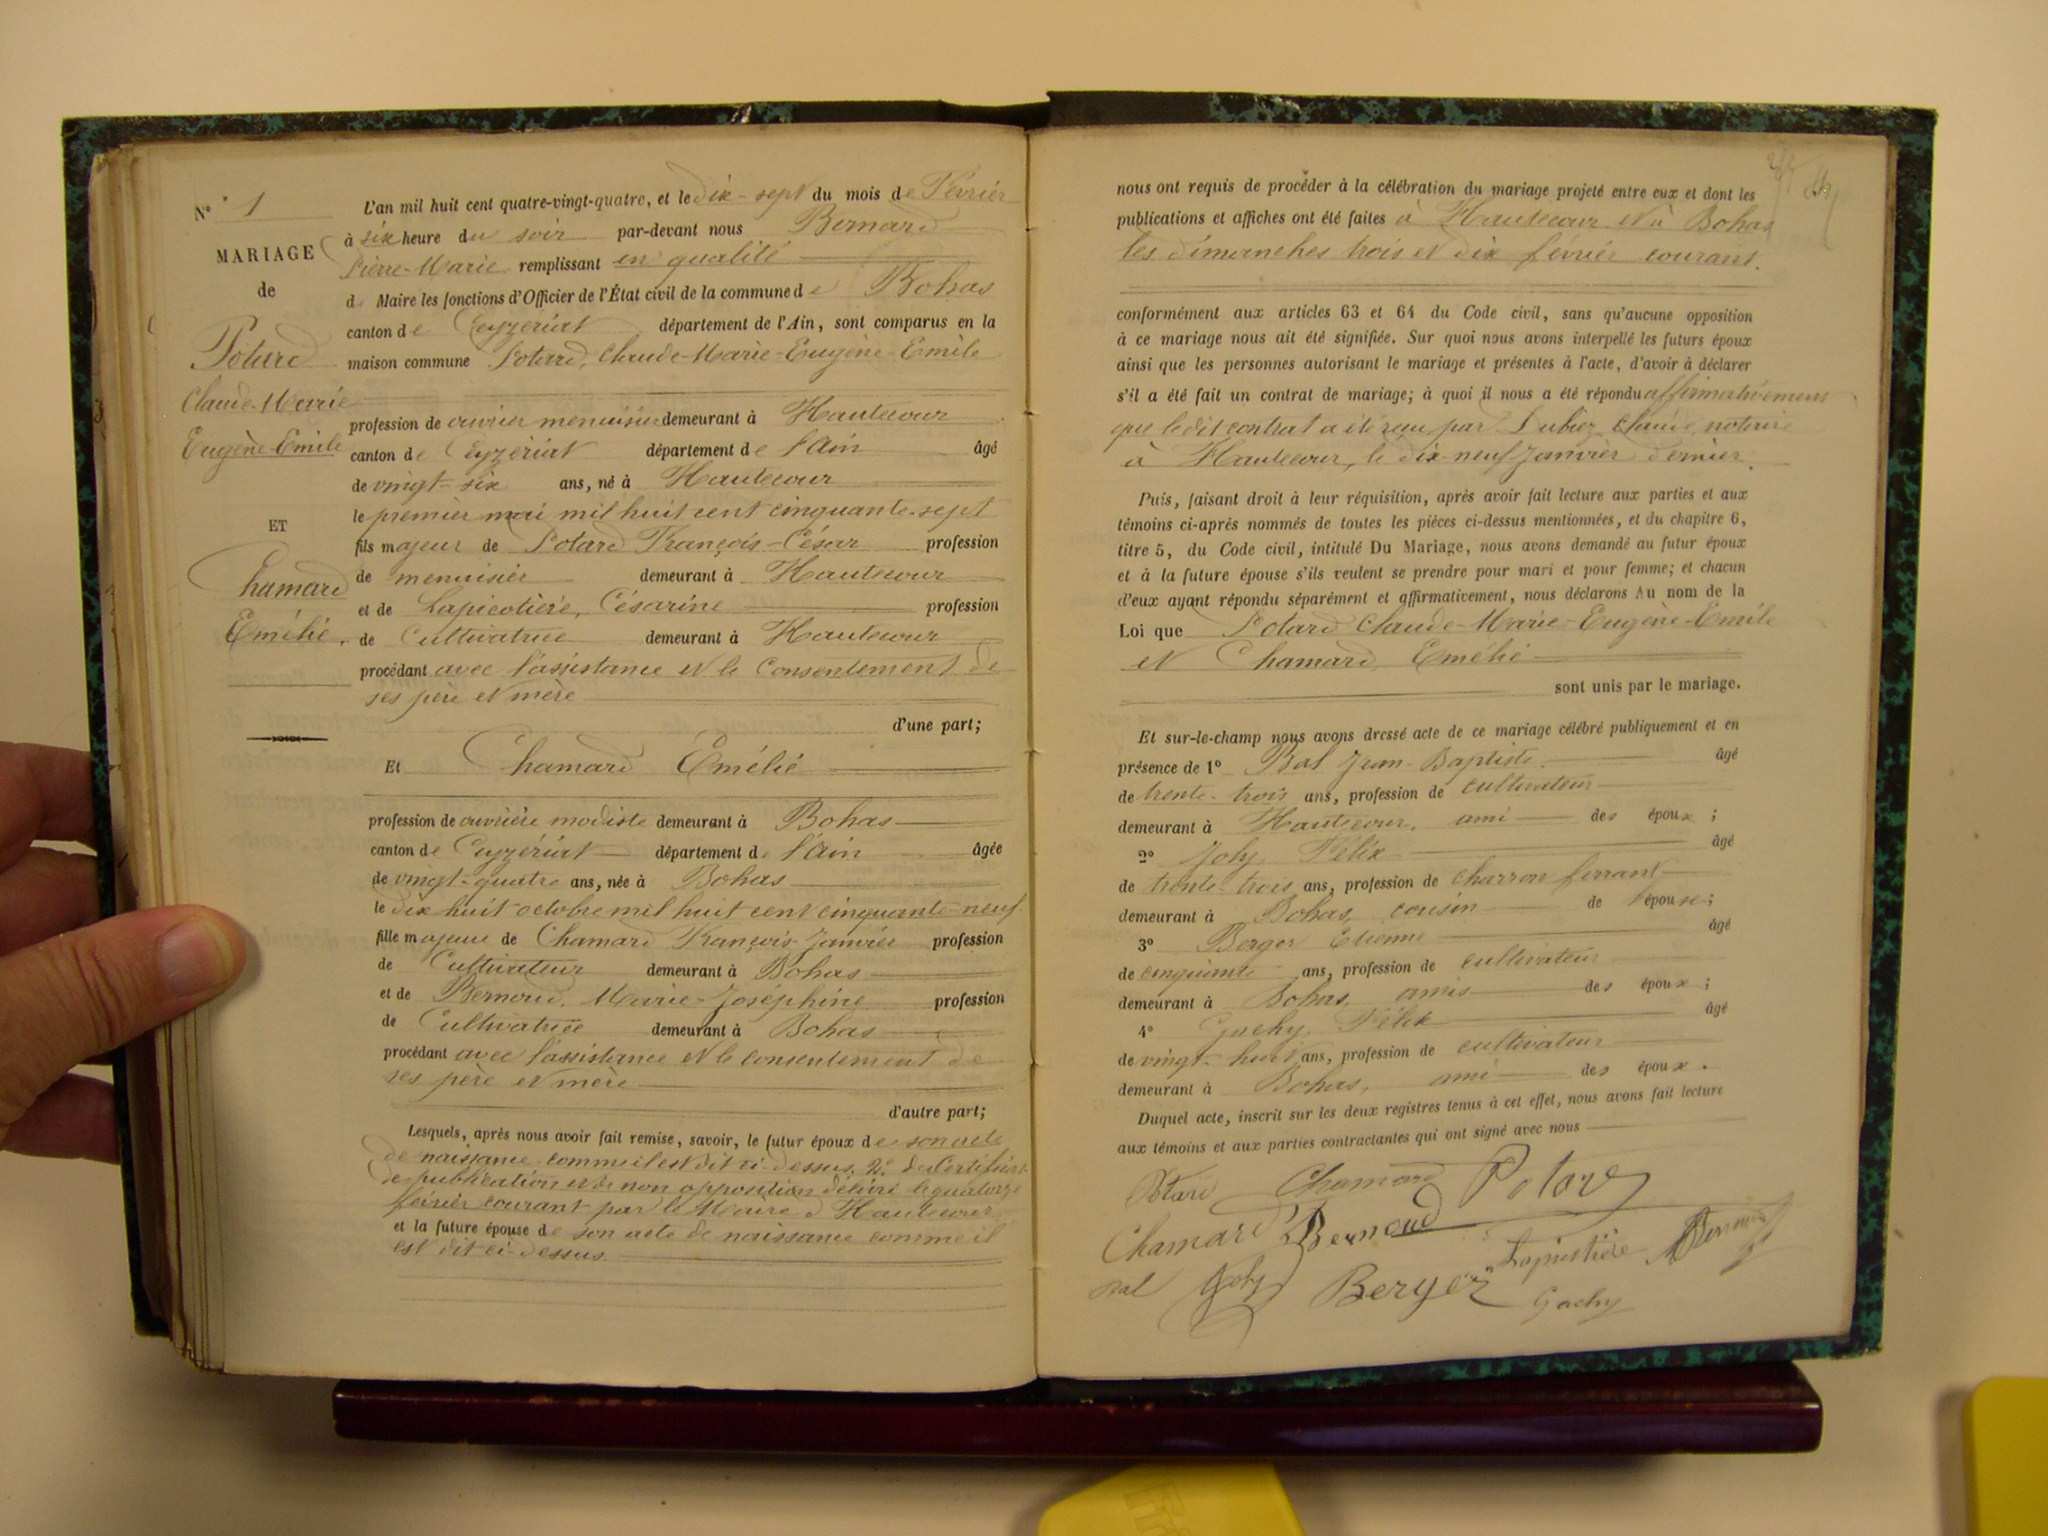 N° 1
MARIAGE
de
Potard
Claude-Marie
Eugène-Emile
ET
Chamard
Emélie.
L'an mil huit cent quatre-vingt-quatre, et le dix-sept du mois de Février
à six heure du soir par-devant nous Bernard
Pierre-Marie remplissant en qualité
de Maire les fonctions d'Officier de l'État civil de la commune de Bohas
canton de Ceyzériat département de l'Ain, sont comparus en la
maison commune Potard, Claude-Marie-Eugène-Emile
profession de ouvrier menuisier demeurant à Hautecour
canton de Ceyzériat département de l'Ain âgé
de vingt-six ans, né à Hautecour
le premier mai mil huit cent cinquante-sept
fils majeur de Potard François-César profession
de menuisier demeurant à Hautecour
et de Lapicotière, Césarine profession
de Cultivatrice demeurant à Hautecour
procédant avec l'assistance et le consentement de
ses père et mère
d'une part;
Et Chamard Emélie
profession de ouvrière modiste demeurant à Bohas
canton de Ceyzériat département de l'Ain âgée
de vingt-quatre ans, née à Bohas
le dix huit octobre mil huit cent cinquante-neuf
fille majeure de Chamard François-Janvier profession
de Cultivateur demeurant à Bohas
et de Bernoud, Marie-Joséphine profession
de Cultivatrice demeurant à Bohas
procédant avec l'assistance et le consentement de
ses père et mère
d'autre part;
Lesquels, après nous avoir fait remise, savoir, le futur époux de son acte
de naissance comme il est dit ci-dessus, 2° du Certificat
de publication et de non opposition délivré le quatorze
février courant par le Maire d'Hautecour
et la future épouse de son acte de naissance comme il
est dit ci-dessus.
nous ont requis de procéder à la célébration du mariage projeté entre eux et dont les
publications et affiches ont été faites à Hautecour et à Bohas
les dimanches trois et dix février courant.
conformément aux articles 63 et 64 du Code civil, sans qu'aucune opposition
à ce mariage nous ait été signifiée. Sur quoi nous avons interpellé les futurs époux
ainsi que les personnes autorisant le mariage et présentes à l'acte, d'avoir à déclarer
s'il a été fait un contrat de mariage; à quoi il nous a été répondu affirmativement
que le dit contrat a été reçu par Claude, notaire
à Hautecour, le dix-neuf Janvier dernier.
Puis, faisant droit à leur réquisition, après avoir fait lecture aux parties et aux
témoins ci-après nommés de toutes les pièces ci-dessus mentionnées, et du chapitre 6,
titre 5, du Code civil, intitulé Du Mariage, nous avons demandé au futur époux
et à la future épouse s'ils veulent se prendre pour mari et pour femme; et chacun
d'eux ayant répondu séparément et affirmativement, nous déclarons Au nom de la
Loi que Potard Claude-Marie-Eugène-Emile
et Chamard, Emélie
sont unis par le mariage.
Et sur-le-champ nous avons dressé acte de ce mariage célébré publiquement et en
présence de 1° Bal Jean-Baptiste. âgé
de trente-trois ans, profession de cultivateur
demeurant à Hautecour, ami des époux;
2° Joly, Félix âgé
de trente-trois ans, profession de charron ferrant
demeurant à Bohas, cousin de l'épouse;
3° Berger Etienne âgé
de cinquante ans, profession de cultivateur
demeurant à Bohas, amis des époux;
4° Gachy, Félix âgé
de vingt-huit ans, profession de cultivateur
demeurant à Bohas, ami des époux.
Duquel acte, inscrit sur les deux registres tenus à cet effet, nous avons fait lecture
aux témoins et aux parties contractantes qui ont signé avec nous
Potard Chamard Potard
Chamard Bernoud Lapicotière Bernard
Bal Joly Berger Gachy